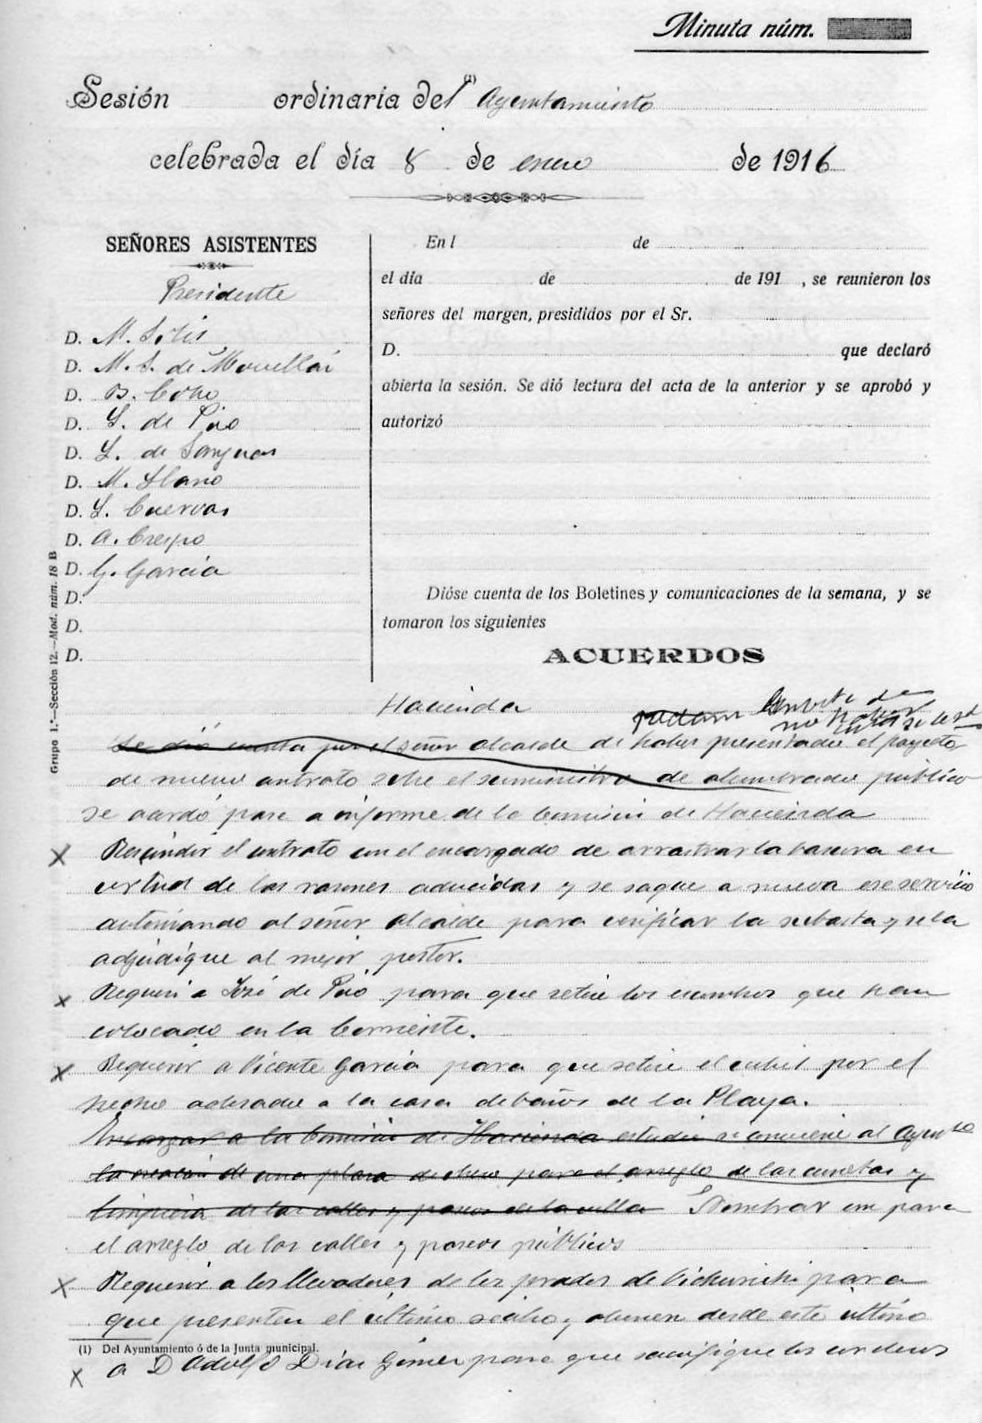 Minuta núm.
Sesión ordinaria del (1) Ayuntamiento
celebrada el día 8 de enero de 1916
SEÑORES ASISTENTES
Presidente
D. M. Solis
D. M. S. de Movellán
D. B. Coño
D. S. de Pío
D. L. de
D. M. Llano
D. L. Cuervas
D. A. Crespo
D. G. García
D.
D.
D.
En l de
el día de de 191 , se reunieron los
señores del margen, presididos por el Sr.
D. que declaró
abierta la sesión. Se dió lectura del acta de la anterior y se aprobó y
autorizó
Dióse cuenta de los Boletines y comunicaciones de la semana, y se
tomaron los siguientes
ACUERDOS
Hacienda
Se dió cuenta por el señor alcalde de haber presentado el proyecto
de nuevo contrato sobre el suministro de alumbrado público
se acordó pase a informe de la Comisión de Hacienda
x Rescindir el contrato con el encargado de arrastrar la basura en
virtud de las razones aducidas y se saque a nueva ese servicio
autorizando al señor alcalde para verificar la subasta y se la
adjudique al mejor postor.
x Requerir a José de Pío para que retire los escombros que han
colocado en la Corriente.
x Requerir a Vicente García para que retire el cubil por el
hecho adosado a la casa de baños de la Playa.
Encargar a la Comisión de Hacienda estudie si conviene al Ayunto
la creación de una plaza de obrero para el arreglo de las cunetas y
limpieza de las calles y paseos de la villa Nombrar uno para
el arreglo de las calles y paseos públicos
x Requerir a los llevadores de los prados de para
que presenten el último recibo y abonen desde este último
(1) Del Ayuntamiento ó de la Junta municipal.
x a D Adolfo Diaz Gómez para que los
Grupo 1.º—Sección 12.—Mod. núm. 18 B